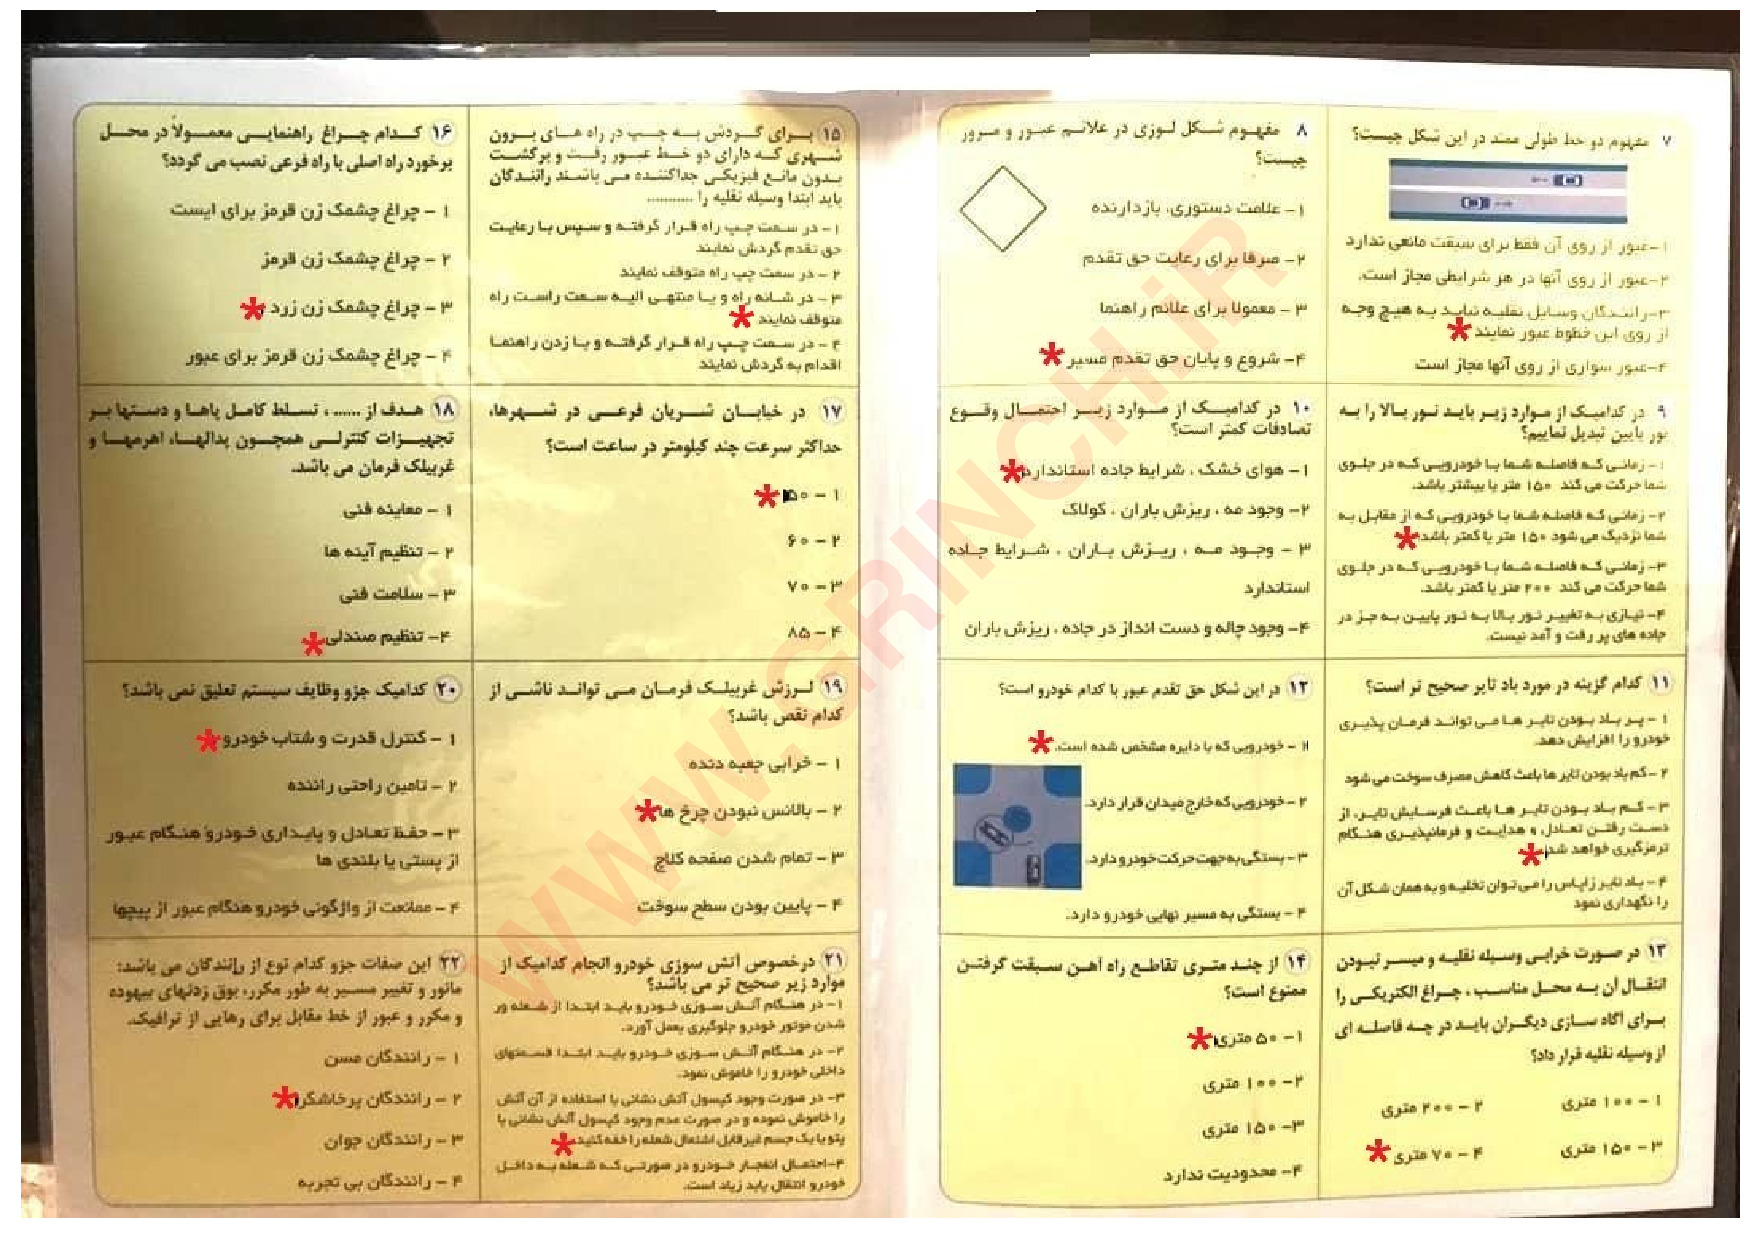 ۷ مفهوم دو خط طولی ممتد در این شکل چیست؟
۱-عبور از روی آن فقط برای سبقت مانعی ندارد
۲-عبور از روی آنها در هر شرایطی مجاز است.
۳-رانندگان وسایل نقلیه نباید به هیچ وجه
از روی این خطوط عبور نمایند
۴-عبور سواری از روی آنها مجاز است
۸ مفهوم شکل لوزی در علائم عبور و مرور
چیست؟
۱- علامت دستوری، بازدارنده
۲- صرفا برای رعایت حق تقدم
۳ - معمولا برای علائم راهنما
۴- شروع و پایان حق تقدم مسیر
۹ در کدامیک از موارد زیر باید نور بالا را به
نور پایین تبدیل نماییم؟
۱- زمانی که فاصله شما با خودرویی که در جلوی
شما حرکت می کند ۱۵۰ متر یا بیشتر باشد.
۲- زمانی که فاصله شما با خودرویی که از مقابل به
شما نزدیک می شود ۱۵۰ متر یا کمتر باشد
۳- زمانی که فاصله شما با خودرویی که در جلوی
شما حرکت می کند ۲۰۰ متر یا کمتر باشد.
۴- نیازی به تغییر نور بالا به نور پایین به جز در
جاده های پر رفت و آمد نیست.
۱۰ در کدامیک از موارد زیر احتمال وقوع
تصادفات کمتر است؟
۱- هوای خشک ، شرایط جاده استاندارد
۲- وجود مه ، ریزش باران ، کولاک
۳ - وجود مه ، ریزش باران ، شرایط جاده
استاندارد
۴- وجود چاله و دست انداز در جاده ، ریزش باران
۱۱ کدام گزینه در مورد باد تایر صحیح تر است؟
۱ - پر باد بودن تایر ها می تواند فرمان پذیری
خودرو را افزایش دهد.
۲- کم باد بودن تایر ها باعث کاهش مصرف سوخت می شود
۳- کم باد بودن تایر ها باعث فرسایش تایر، از
دست رفتن تعادل و هدایت و فرمانپذیری هنگام
ترمزگیری خواهد شد
۴- باد تایر زاپاس را می توان تخلیه و به همان شکل آن
را نگهداری نمود
۱۲ در این شکل حق تقدم عبور با کدام خودرو است؟
۱- خودرویی که با دایره مشخص شده است.
۲- خودرویی که خارج میدان قرار دارد.
۳- بستگی به جهت حرکت خودرو دارد.
۴- بستگی به مسیر نهایی خودرو دارد.
۱۳ در صورت خرابی وسیله نقلیه و میسر نبودن
انتقال آن به محل مناسب ، چراغ الکتریکی را
برای آگاه سازی دیگران باید در چه فاصله ای
از وسیله نقلیه قرار داد؟
۱ - ۱۰۰ متری ۲ - ۲۰۰ متری
۳ - ۱۵۰ متری ۴ - ۷۰ متری
۱۴ از چند متری تقاطع راه آهن سبقت گرفتن
ممنوع است؟
۱- ۵۰ متری
۲- ۱۰۰ متری
۳- ۱۵۰ متری
۴- محدودیت ندارد
۱۵ برای گردش به چپ در راه های برون
شهری که دارای دو خط عبور رفت و برگشت
بدون مانع فیزیکی جداکننده می باشند رانندگان
باید ابتدا وسیله نقلیه را ............
۱- در سمت چپ راه قرار گرفته و سپس با رعایت
حق تقدم گردش نمایند
۲ - در سمت چپ راه متوقف نمایند
۳ - در شانه راه و یا منتهی الیه سمت راست راه
متوقف نمایند
۴ - در سمت چپ راه قرار گرفته و با زدن راهنما
اقدام به گردش نمایند
۱۶ کدام چراغ راهنمایی معمولاً در محل
برخورد راه اصلی با راه فرعی نصب می گردد؟
۱ - چراغ چشمک زن قرمز برای ایست
۲ - چراغ چشمک زن قرمز
۳ - چراغ چشمک زن زرد
۴ - چراغ چشمک زن قرمز برای عبور
۱۷ در خیابان شریان فرعی در شهرها،
حداکثر سرعت چند کیلومتر در ساعت است؟
۱ - ۵۰
۲ - ۶۰
۳ - ۷۰
۴ - ۸۵
۱۸ هدف از ...... ، تسلط کامل پاها و دستها بر
تجهیزات کنترلی همچون پدالها، اهرمها و
غربیلک فرمان می باشد.
۱ - معاینه فنی
۲ - تنظیم آینه ها
۳ - سلامت فنی
۴- تنظیم صندلی
۱۹ لرزش غربیلک فرمان می تواند ناشی از
کدام نقص باشد؟
۱ - خرابی جعبه دنده
۲ - بالانس نبودن چرخ ها
۳ - تمام شدن صفحه کلاچ
۴ - پایین بودن سطح سوخت
۲۰ کدامیک جزو وظایف سیستم تعلیق نمی باشد؟
۱ - کنترل قدرت و شتاب خودرو
۲ - تامین راحتی راننده
۳ - حفظ تعادل و پایداری خودرو هنگام عبور
از پستی یا بلندی ها
۴ - ممانعت از واژگونی خودرو هنگام عبور از پیچها
۲۱ درخصوص آتش سوزی خودرو انجام کدامیک از
موارد زیر صحیح تر می باشد؟
۱- در هنگام آتش سوزی خودرو باید ابتدا از شعله ور
شدن موتور خودرو جلوگیری بعمل آورد.
۲- در هنگام آتش سوزی خودرو باید ابتدا قسمتهای
داخلی خودرو را خاموش نمود.
۳- در صورت وجود کپسول آتش نشانی با استفاده از آن آتش
را خاموش نموده و در صورت عدم وجود کپسول آتش نشانی با
پتو یا یک جسم غیرقابل اشتعال شعله را خفه کنید.
۴-احتمال انفجار خودرو در صورتی که شعله به داخل
خودرو انتقال یابد زیاد است.
۲۲ این صفات جزو کدام نوع از رانندگان می باشد:
مانور و تغییر مسیر به طور مکرر، بوق زدنهای بیهوده
و مکرر و عبور از خط مقابل برای رهایی از ترافیک.
۱ - رانندگان مسن
۲ - رانندگان پرخاشگر
۳ - رانندگان جوان
۴ - رانندگان بی تجربه
WWW.GRINCH.iR